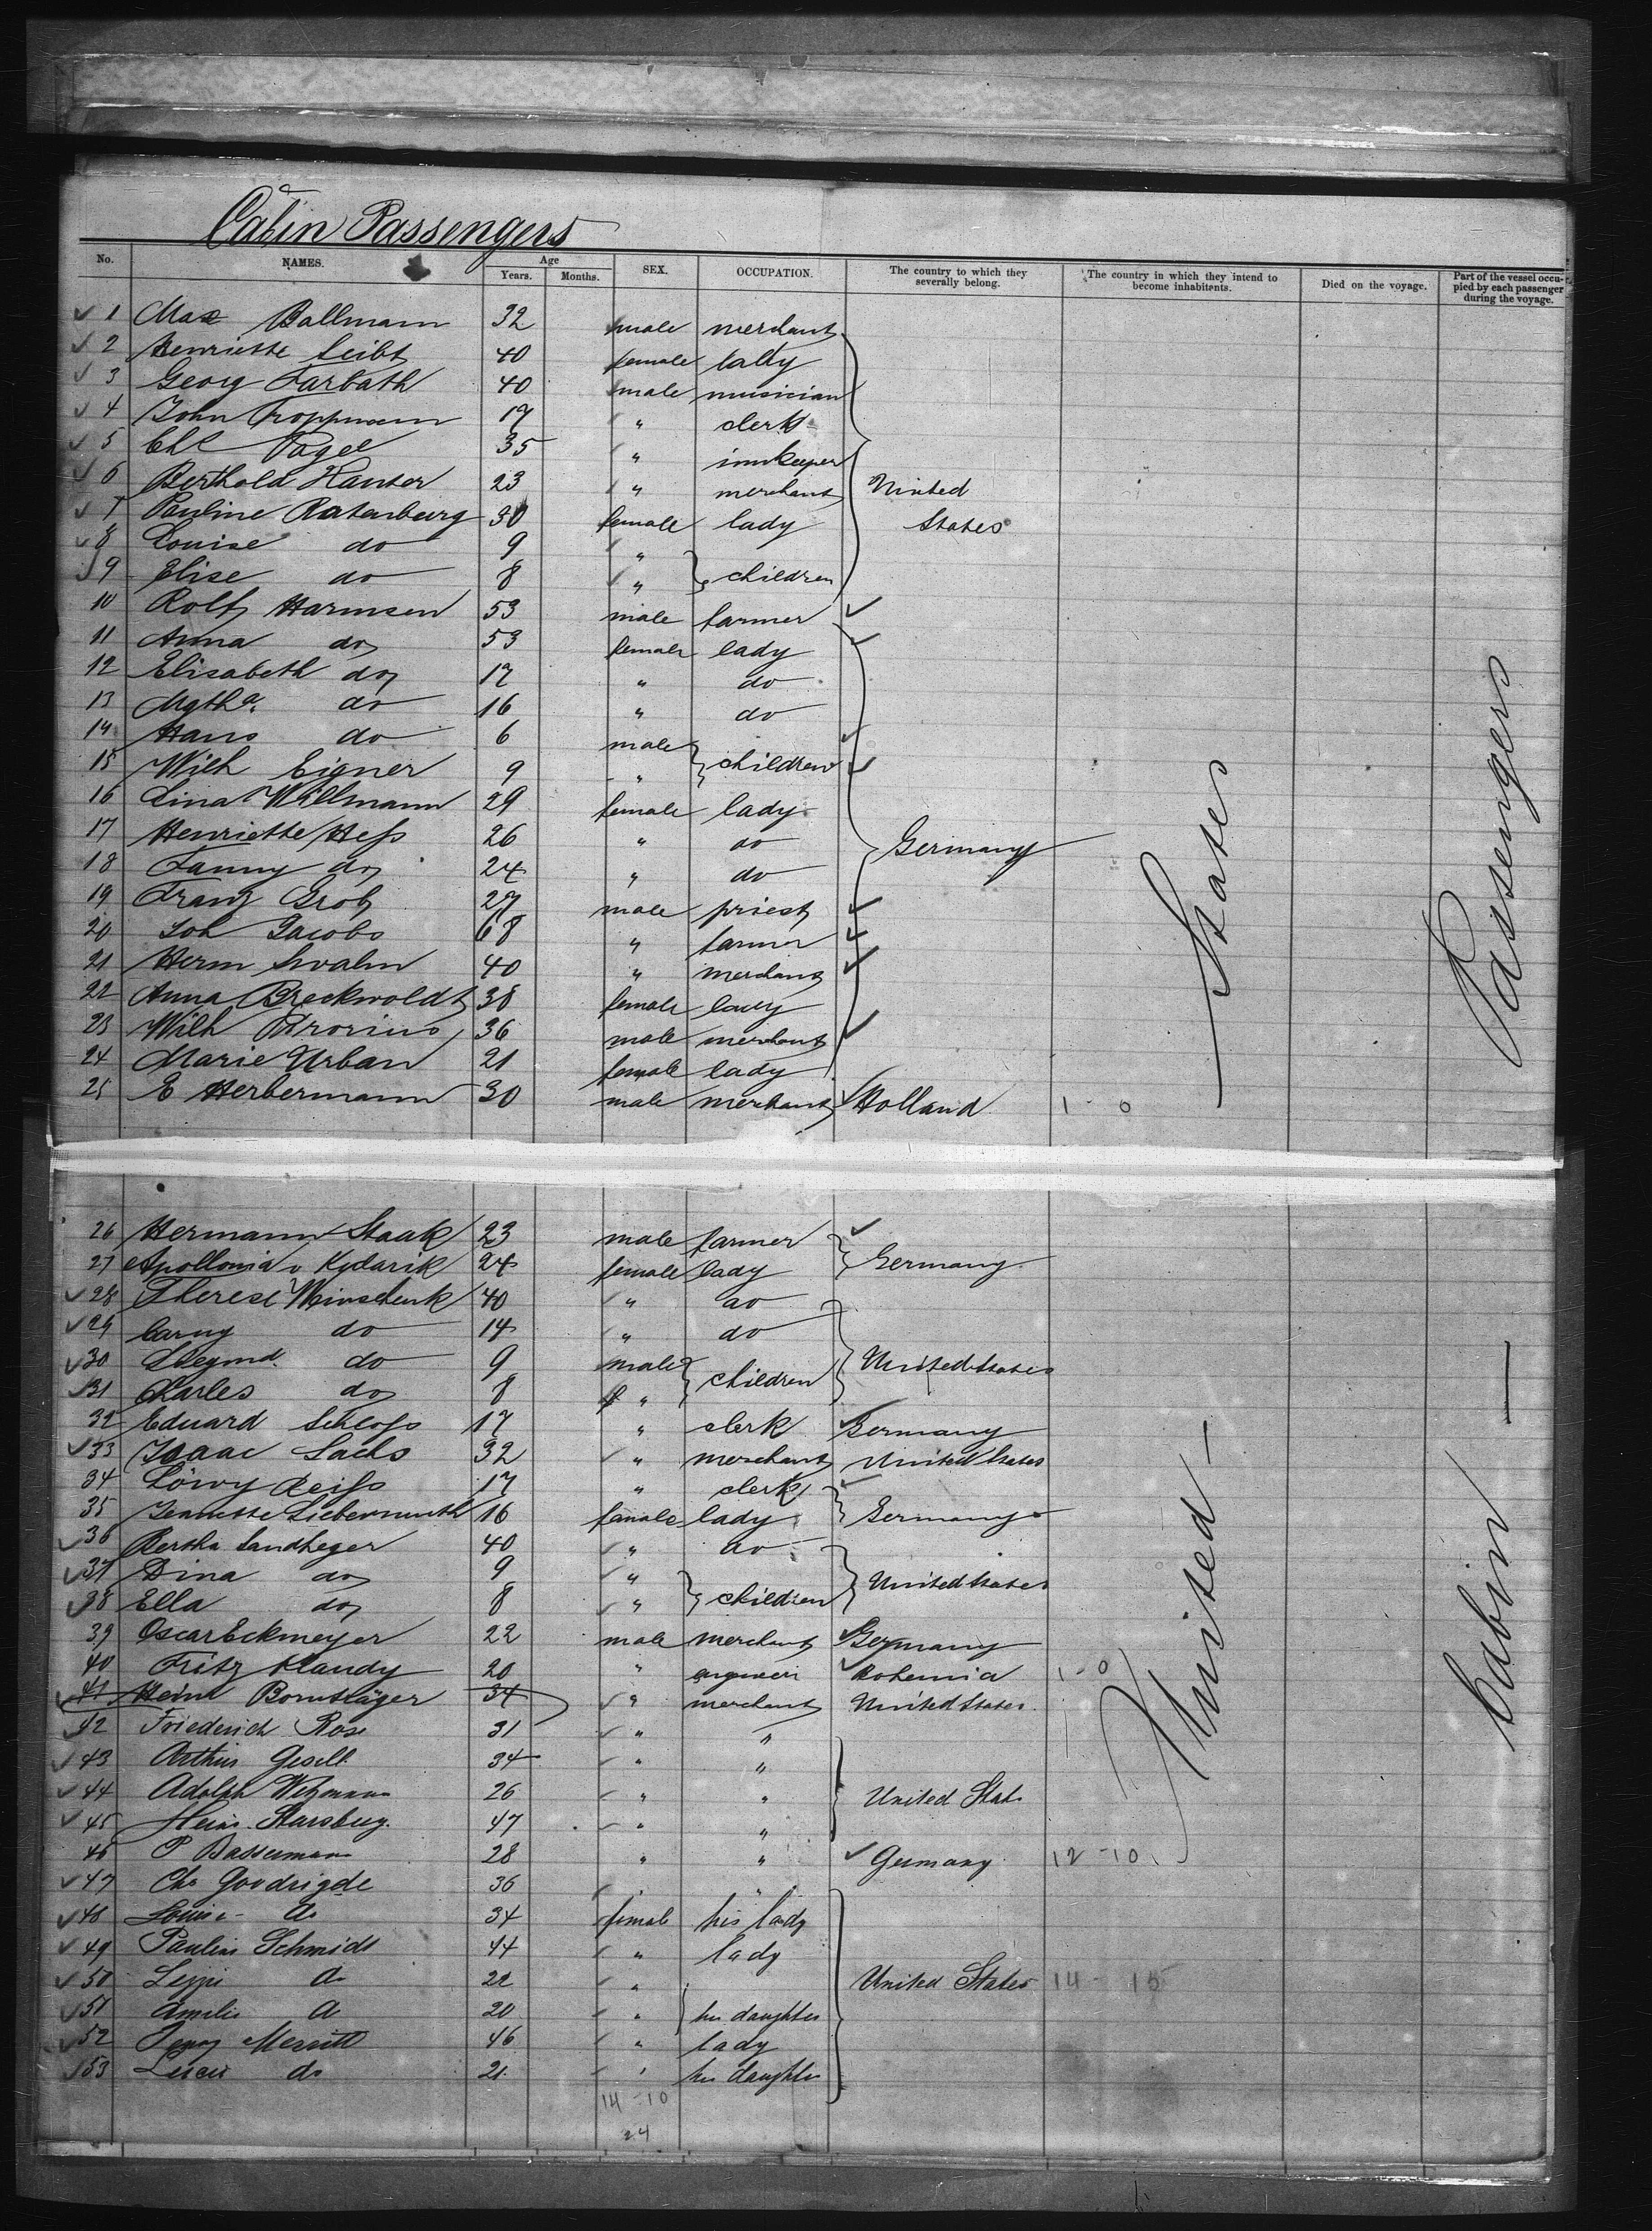 Cabin Passengers
No. NAMES. Age Years. Months. SEX. OCCUPATION. The country to which they severally belong. The country in which they intend to become inhabitants. Died on the voyage. Part of the vessel occupied by each passenger during the voyage.
1 Max Ballmann 32 male merchant
2 Henriette Seibt 40 female lady
3 Georg Farbath 40 male musician
4 John Troppmann 17 " clerk
5 Chl Pagel 35 " innkeeper
6 Berthold Kantor 23 " merchant United
7 Pauline Ratenburg 30 female lady States
8 Louise do 9 "
9 Elise do 8 " children
10 Rolf Harmsen 53 male farmer
11 Anna do 53 female lady
12 Elisabeth do 17 " do
13 Mgtha. do 16 " do
14 Hans do 6 male
15 Wilh Eigner 9 " children
16 Lina Wallmann 29 female lady
17 Henriette Hess 26 " do Germany
18 Fanny do 24 " do
19 Franz Grob 27 male priest
20 Joh Jacobs 68 " farmer
21 Herm Swalm 40 " merchant
22 Anna Breckwoldt 38 female lady
23 Wilh 36 male merchant
24 Marie Urban 21 female lady
25 E Herbermann 30 male merchant Holland 1 - 0
26 Hermann Staak 23 male farmer
27 Apollonia v Kydarik 24 female lady Germany
28 Therese Weinschenk 40 " do
29 Carny do 14 " do
30 Siegmd. do 9 male United States
31 Charles do 8 " children
32 Eduard Schloss 17 " clerk Germany
33 Isaac Sachs 32 " merchant United States
34 Löwy Reiss 17 " clerk
35 Jeannette Liebermuth 16 female lady Germany
36 Bertha Landheger 40 " do
37 Dina do 9 " United States
38 Ella do 8 " children
39 Oscar Eckmeyer 22 male merchant Germany
40 Fritz Klaudy 20 " engineer Bohemia 1 - 0
41 Heinr Bornträger 34 " merchant United States
42 Friederich Rose 31 " "
43 Arthur Gesell 34 " "
44 Adolph 26 " " United Stat
45 Heinr. Starsburg. 47 " "
46 P Bassermann 28 " " Germany 12 - 10
47 Chs Goodrigde 36 " "
48 Louise do 34 femal his lady
49 Pauline Schmidt 44 " lady
50 Lizzi do 22 " United States 14 - 15
51 Amelie do 20 " her daughter
52 Jenny Merritt 46 " lady
53 do 21 " her daughter
14 - 10
24
United - States
Cabin - Passengers